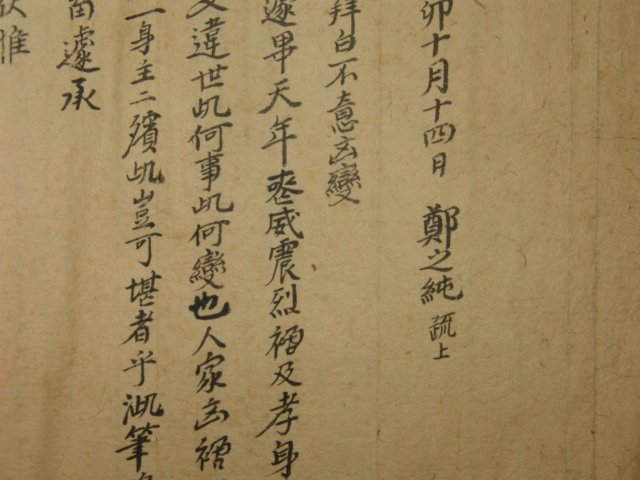 卯十月十四日 鄭之純 疏上
拜白不意凶變
遽畢天年 威震烈禍及孝身
違世此何事此何變也人家凶禍
一身主二殯此豈可堪者乎 筆
遽承
惟